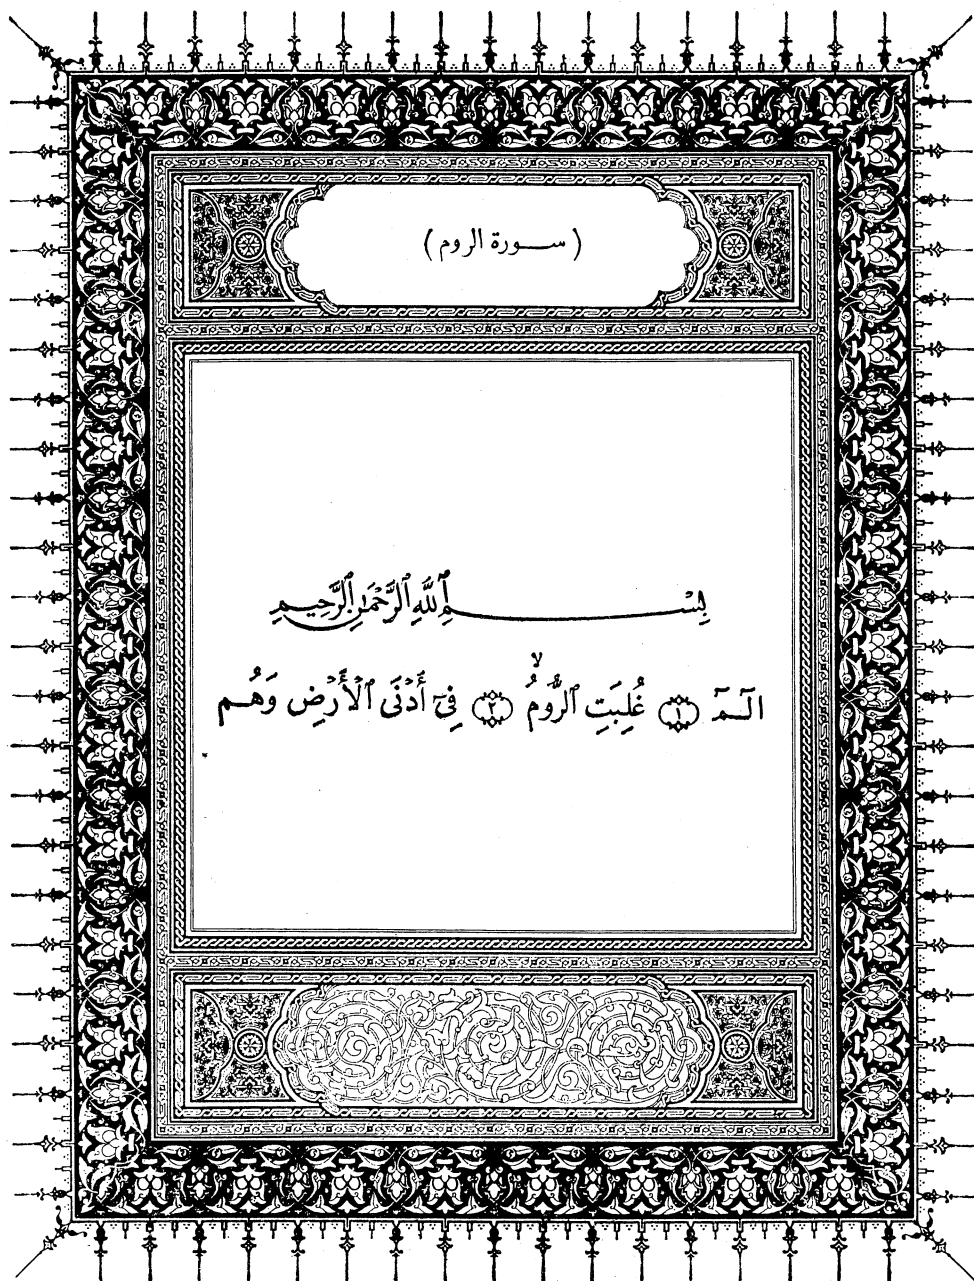 ( ســورة الروم )
بِسْــــــمِ ٱللَّهِ ٱلرَّحْمَٰنِ ٱلرَّحِيمِ
الٓـمٓ ۝١ غُلِبَتِ ٱلرُّومُ ۙ ۝٢ فِىٓ أَدْنَى ٱلْأَرْضِ وَهُـم